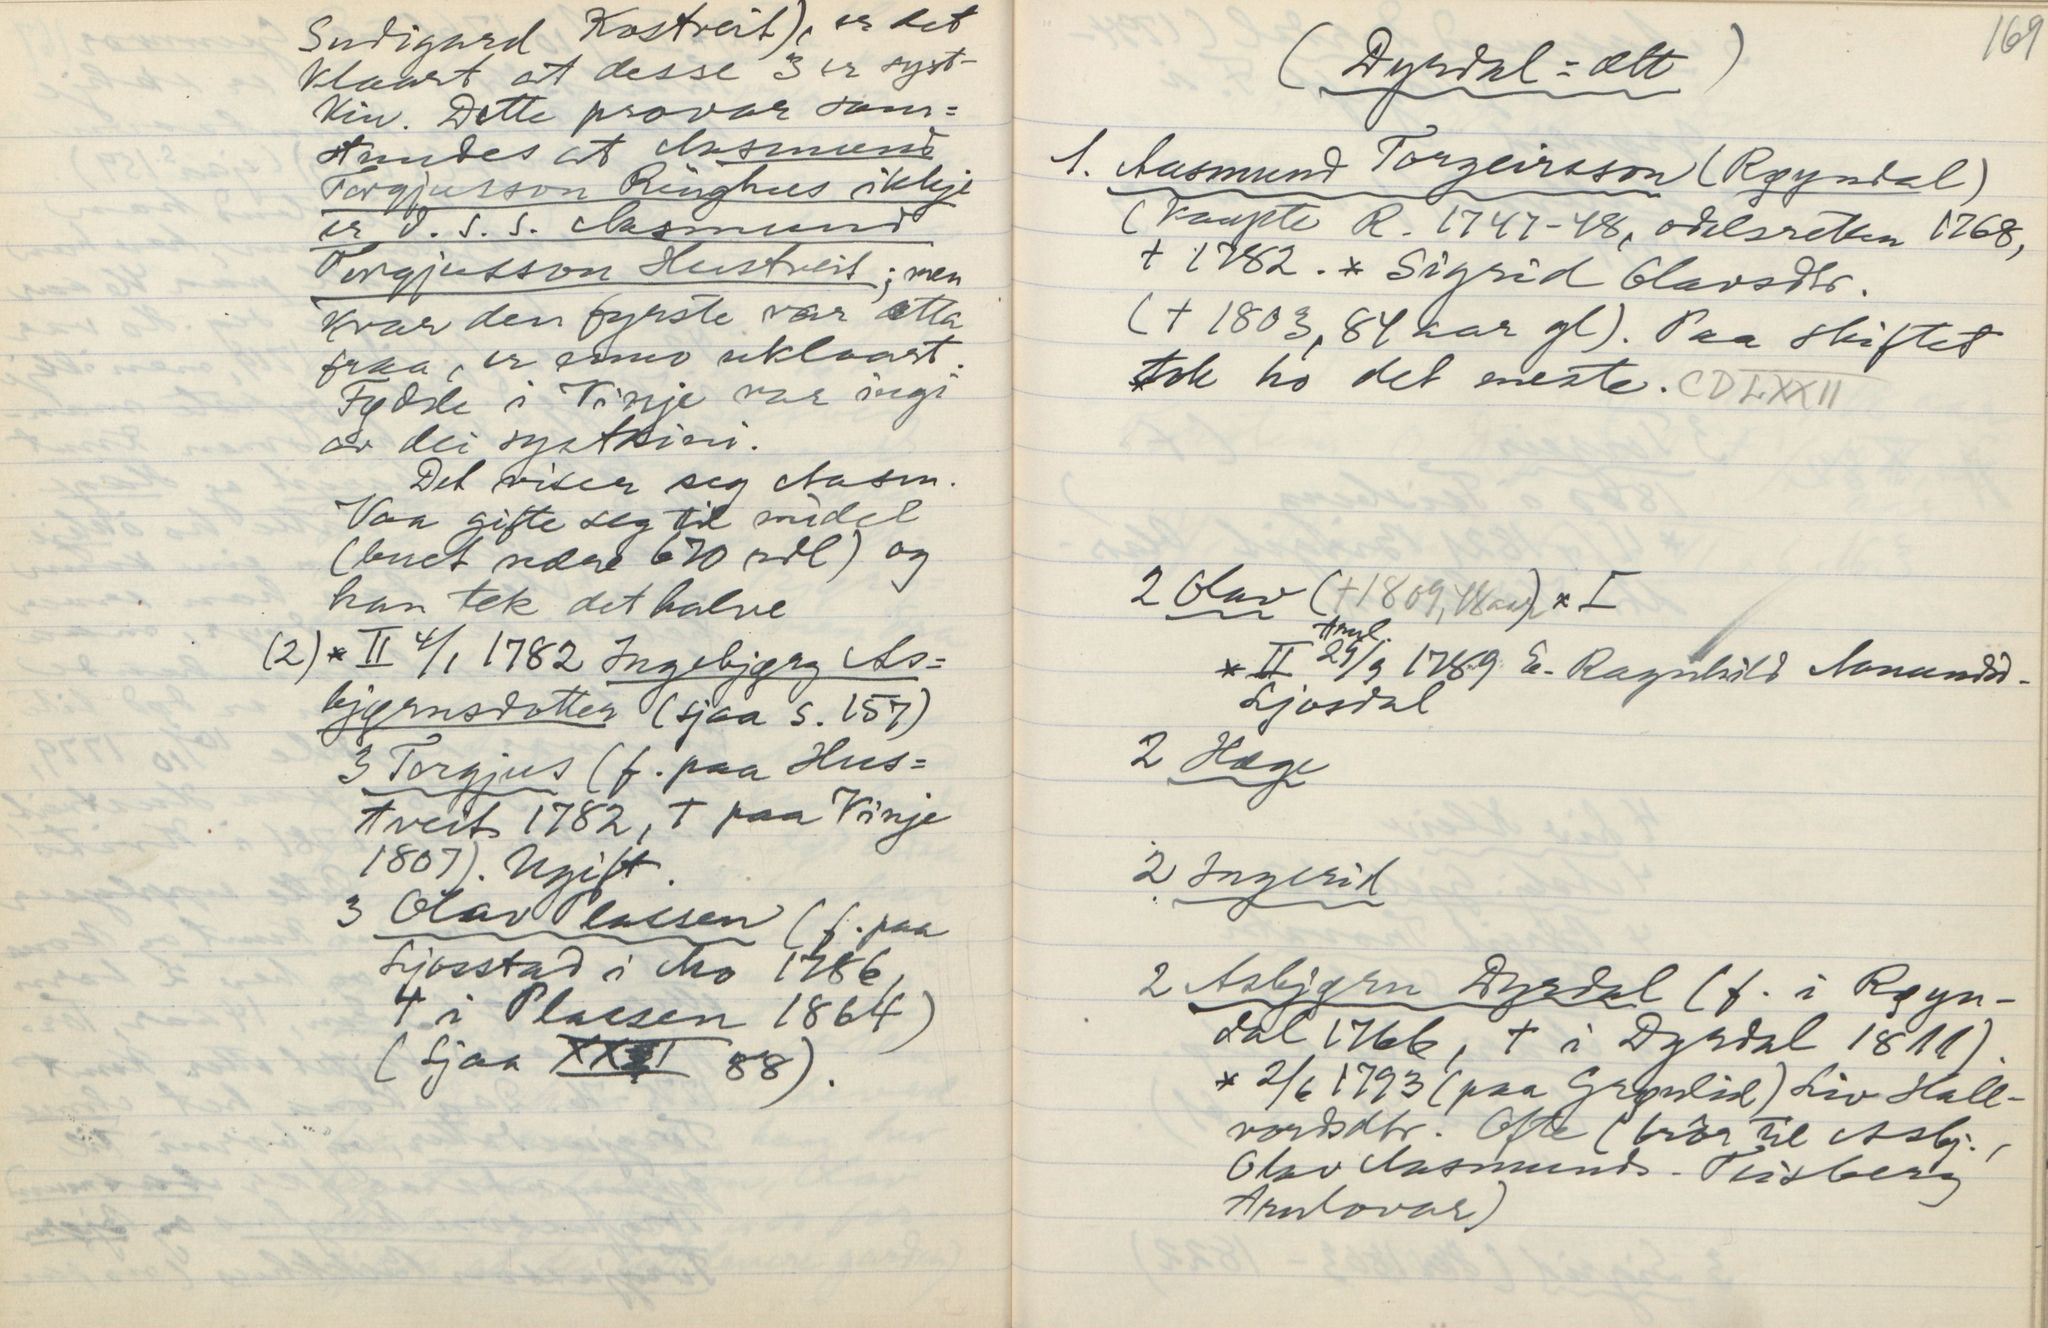 Sudigard Kostveit), er det
klaart at desse 3 er syst-
kin. Dette provar sam=
stundes at Aasmund
Torgjusson Ringhus ikkje
er d. s. s. Aasmund
Torgjusson Hustveit; men
kvar den fyrste var ætta
fraa, er enno uklaart.
Fødde i Vinje var ingi
av dei systkini.
Det viser seg Aasm.
Vaa gifte seg til midel
(buet 670 rdl) og
han tok det halve
(2) * II 4/1 1782 Ingebjørg As=
bjørnsdotter (sjaa s. 157)
3 Torgjus (f. paa Hus=
tveit 1782, † paa Vinje
1807). Ugift.
3 Olav Plassen (f. paa
Ljosstad i Mo 1786,
† i Plassen 1864)
(Sjaa 88).
169
(Dyrdal=ætt)
1. Aasmund Torgeirsson (Røyndal)
(Kaupte R. 1747-48, odelsretten 1768,
† 1782. * Sigrid Olavsdtr.
(† 1803, 84 aar gl). Paa skiftet
tok ho det meste. CDLXXII
2 Olav (†1809, 48 aar) * I
Trul.
* II 29/9 1789 E. Ragnhild Aanundsd.
Ljosdal
2 Hæge
2 Ingerid
2 Asbjørn Dyrdal (f. i Røyn-
dal 1766, † i Dyrdal 1811).
* 2/6 1793 (paa Grønlid) Liv Hall-
vordsdtr. Ofte (bror til Asbj.,
Olav Aasmunds. Teisberg
trulovar)